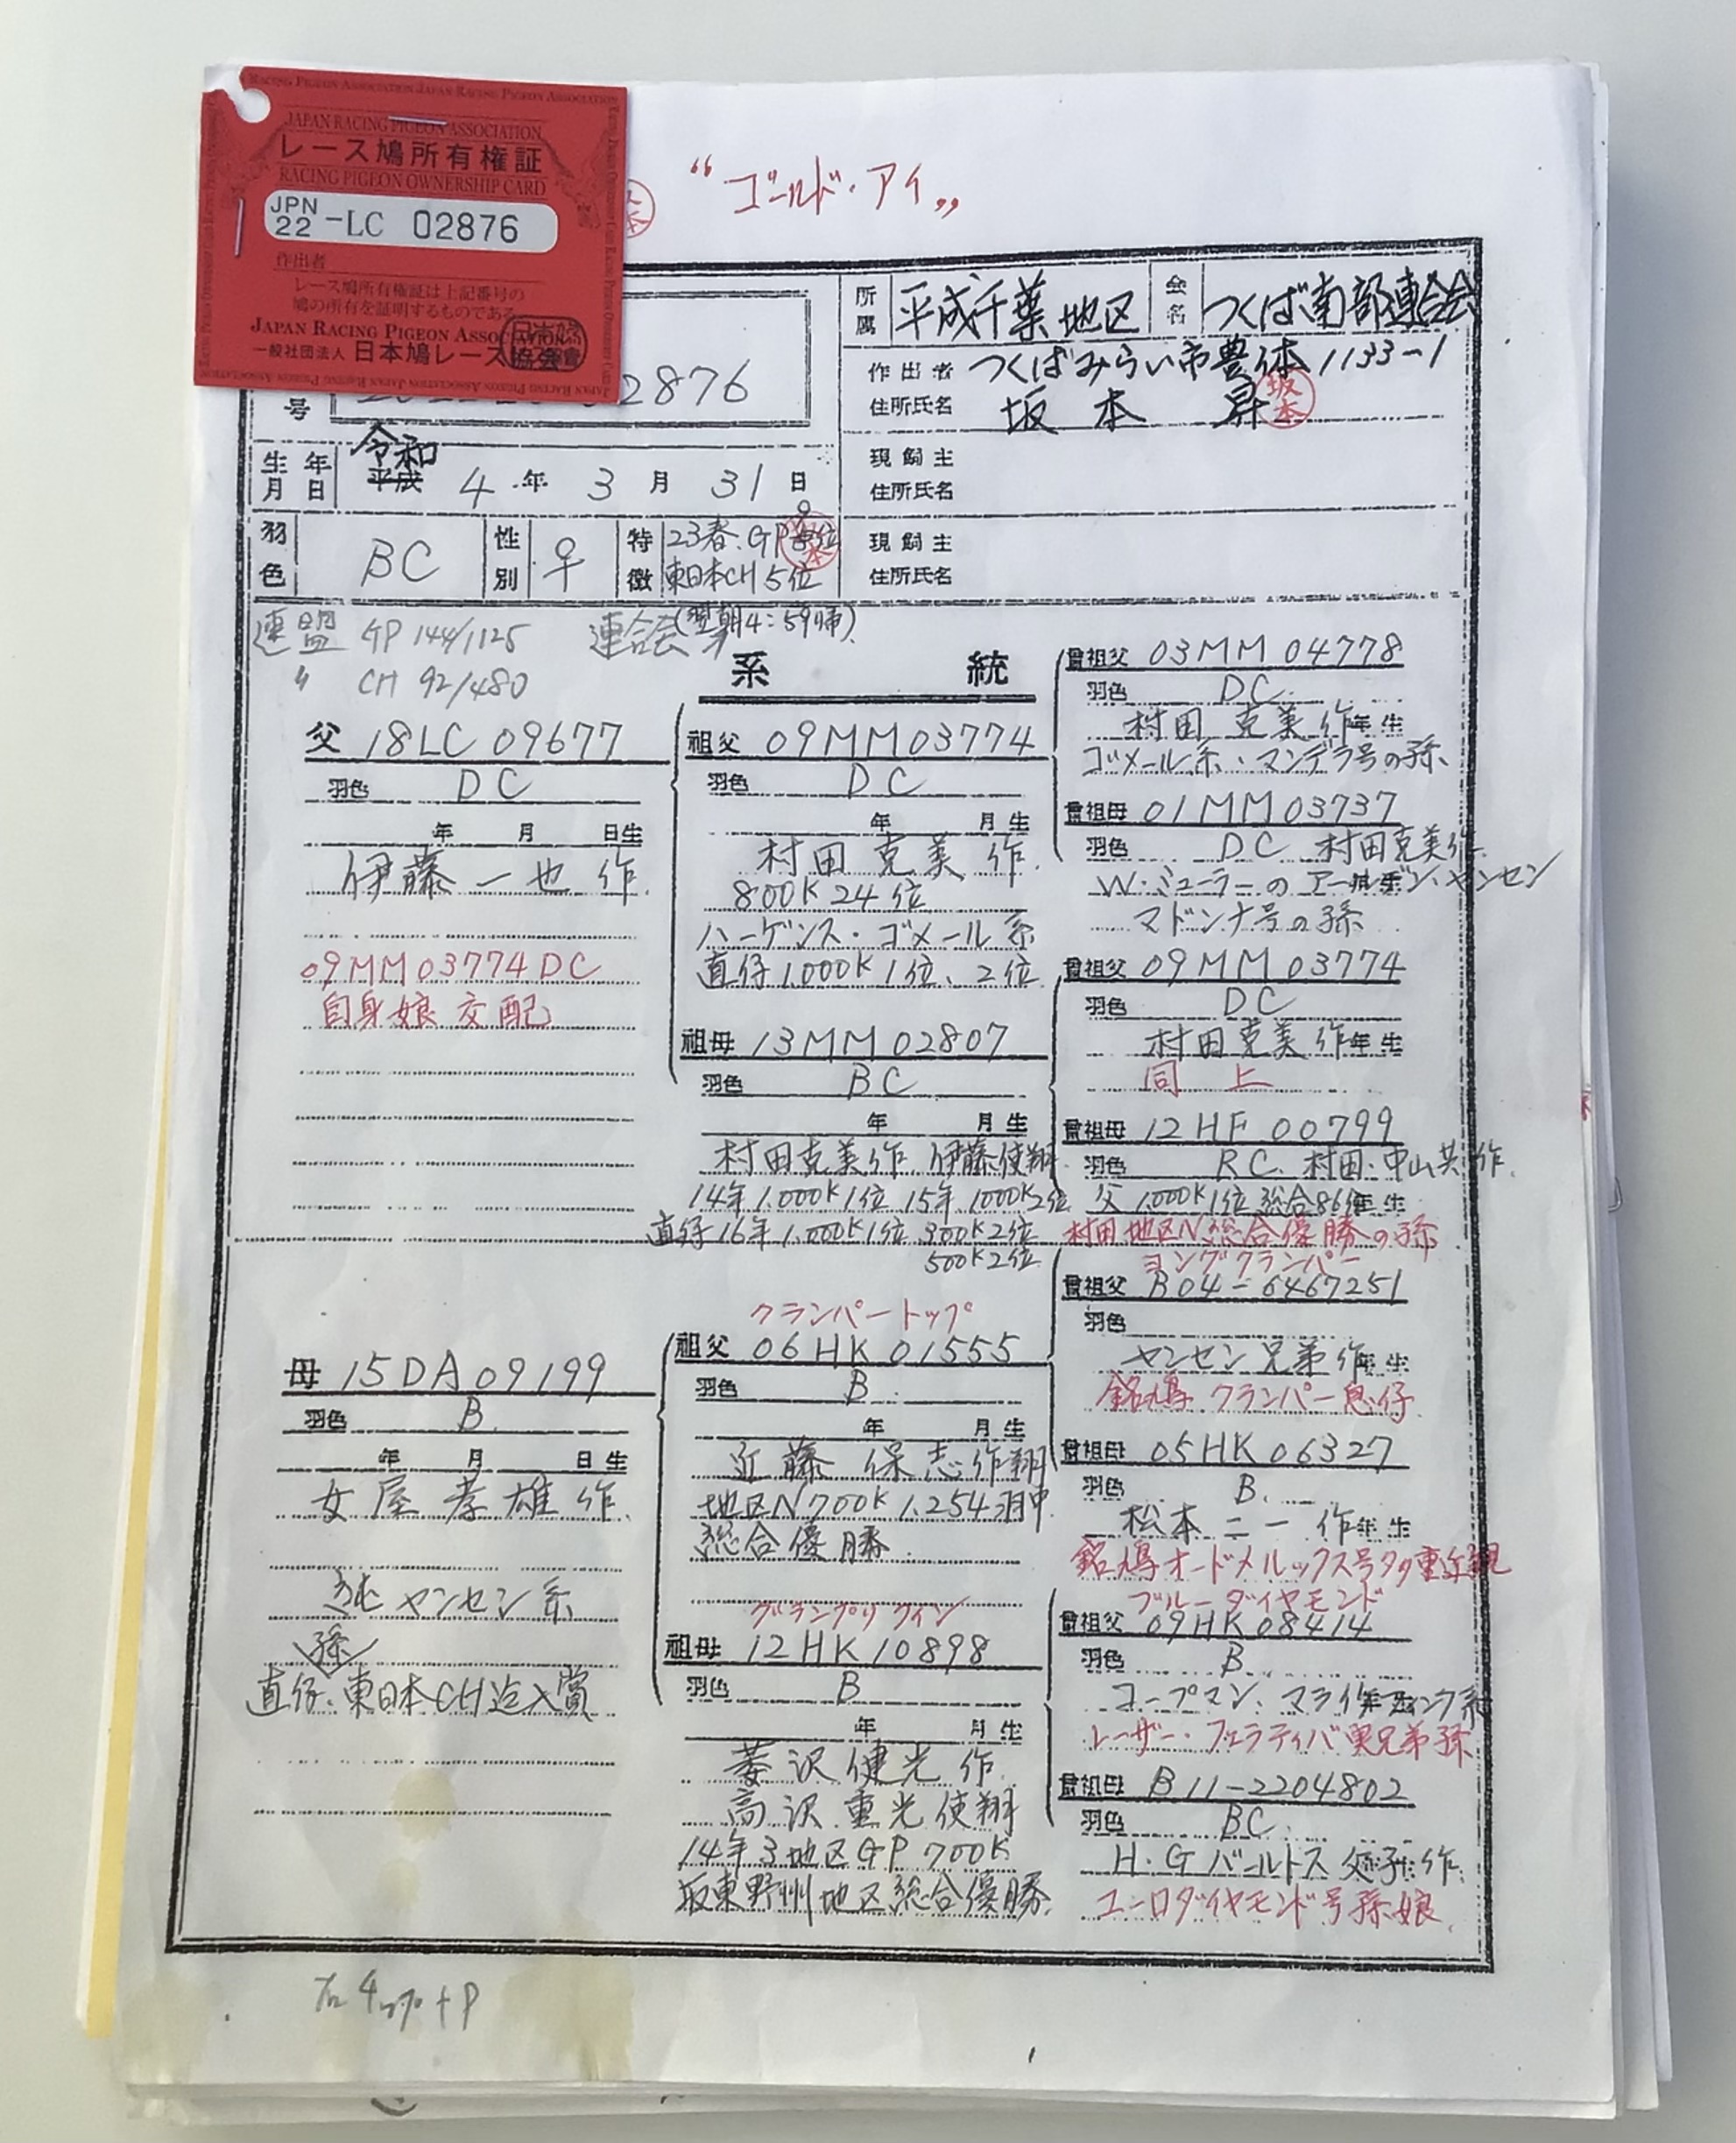 RACING PIGEON ASSOCIATION JAPAN RACING PIGEON ASSOCIATION
JAPAN RACING PIGEON ASSOCIATION
レース鳩所有権証
RACING PIGEON OWNERSHIP CARD
JPN
22 -LC 02876
作出者
レース鳩所有権証は上記番号の
鳩の所有を証明するものである
JAPAN RACING PIGEON ASSOCIATION
一般社団法人 日本鳩レース協会
“ゴールド・アイ„
所属 平成千葉地区 会名 つくば南部連合会
号 2876
作出者 つくばみらい市豊体1133-1
住所氏名 坂本 昇
坂本
生年月日 令和 平成 4年 3月 31日
現飼主
住所氏名
羽色 BC 性別 ♀ 特徴 23春.GP 位
東日本CH5位
現飼主
住所氏名
連盟 GP 144/1125 連合会 (翌朝4:59帰)
〃 CH 92/480
系統
父 18LC 09677
羽色 DC
年 月 日生
伊藤一也 作
09MM03774DC
自身娘交配
祖父 09MM03774
羽色 DC
年 月生
村田克美 作
800K24位
ハーゲンス・ゴメール系
直仔1.000K1位、2位
祖母 13MM02807
羽色 BC
年 月生
村田克美作 伊藤使翔
14年1.000K1位 15年1000K2位
直仔16年1.000K1位 900K2位
500K2位
曽祖父 03MM 04778
羽色 DC
村田克美作 年生
ゴメール系・マンデラ号の孫
曽祖母 01MM03737
羽色 DC 村田克美作
W.ミューラーの アールデン・ヤンセン
マドンナ号の孫
曽祖父 09MM 03774
羽色 DC
村田克美作 年生
同上
曽祖母 12HF 00799
羽色 RC 村田・中山共作
父1.000K1位 総合86位 年生
村田地区N総合優勝の孫
母 15DA09199
羽色 B
年 月 日生
女屋孝雄作
純ヤンセン系
孫
直仔.東日本CH迄入賞
クランパートップ
祖父 06HK01555
羽色 B
年 月生
近藤保志作翔
地区N700K1.254羽中
総合優勝
グランプリクイン
祖母 12HK10898
羽色 B
年 月生
菱沢健光作
高沢重光使翔
14年3地区GP700K
坂東野州地区総合優勝
ヨングクランパー
曽祖父 B04-6467251
羽色
ヤンセン兄弟作 年生
銘鳩 クランパー息仔
曽祖母 05HK06327
羽色 B.
松本二一作 年生
銘鳩オードメルックス号多重近親
ブルーダイヤモンド
曽祖父 09HK08414
羽色 B
コープマン、マライ作 系
レーザー・フェラティバ異兄弟孫
曽祖母 B11-2204802
羽色 BC
H.Gバールトス父子作
ユーロダイヤモンド号孫娘